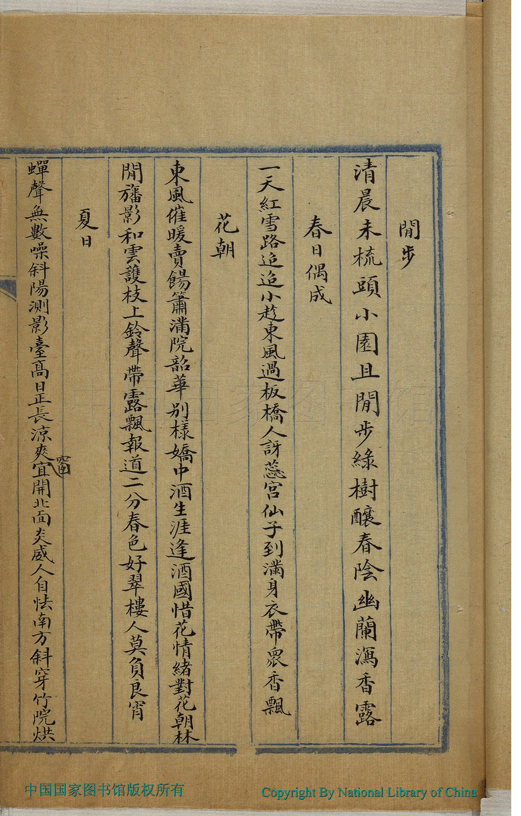 閒步
清晨未梳頭小園且閒步綠樹釀春陰幽蘭瀉香露
春日偶成
一天紅雪路迢迢小趂東風過板橋人訝蕊宮仙子到滿身衣帶衆香飄
花朝
東風催暖賣餳簫滿院韶華別樣嬌中酒生涯逢酒國惜花情緒對花朝林
閒旛影和雲護枝上鈴聲帶露飄報道二分春色好翠樓人莫負良宵
夏日
蟬聲無數噪斜陽測影臺高日正長涼爽宜開北面炎威人自怯南方斜穿竹院烘
中国国家图书馆版权所有
Copyright By National Library of China